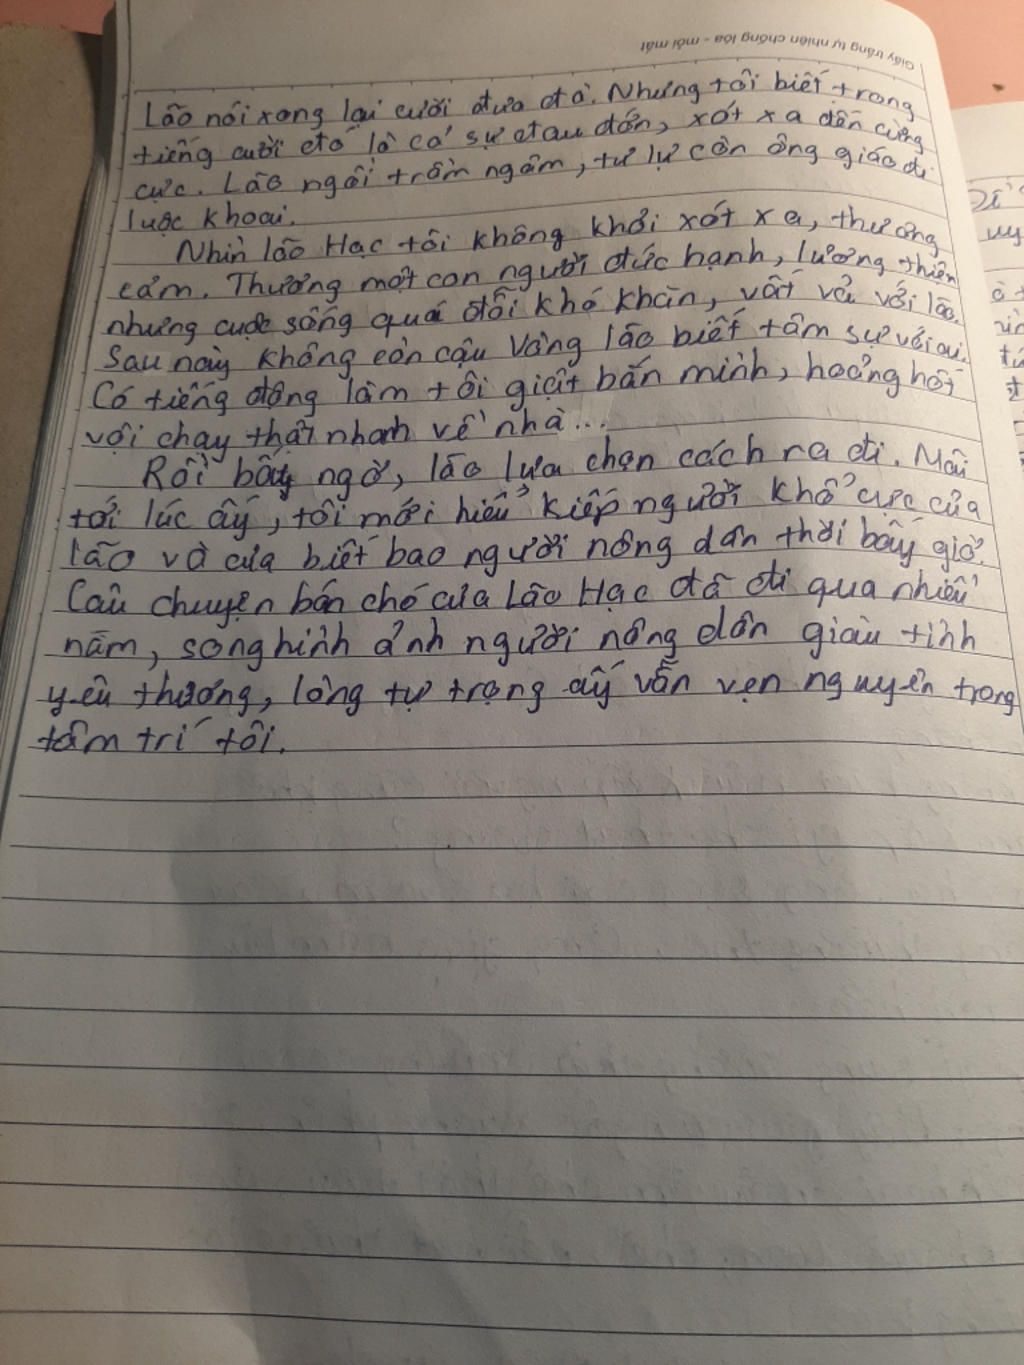 Giấy trắng tự nhiên chống lóa - mỏi mắt
Lão nói xong lại cười đưa đà. Nhưng tôi biết trong
tiếng cười đó là cả sự đau đớn, xót xa đến cùng
cực. Lão ngồi trầm ngâm, tư lự còn ông giáo đi
luộc khoai.
Nhìn lão Hạc tôi không khỏi xót xa, thương
cảm. Thương một con người đức hạnh, lương thiện
nhưng cuộc sống quá đỗi khó khăn, vất vả với lão.
Sau này không còn cậu Vàng lão biết tâm sự với ai.
Có tiếng động làm tôi giật bắn mình, hoảng hốt
vội chạy thật nhanh về nhà...
Rồi bất ngờ, lão lựa chọn cách ra đi. Mãi
tới lúc ấy, tôi mới hiểu kiếp người khổ cực của
lão và của biết bao người nông dân thời bấy giờ.
Câu chuyện bán chó của Lão Hạc đã đi qua nhiều
năm, song hình ảnh người nông dân giàu tình
yêu thương, lòng tự trọng ấy vẫn vẹn nguyên trong
tâm trí tôi.